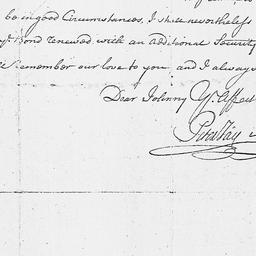 be in good Circumstances, I shall nevertheless
Bond renewed with an additional Security
Remember our love to you and I always
Dear Johnny Yr. Affect
Jay